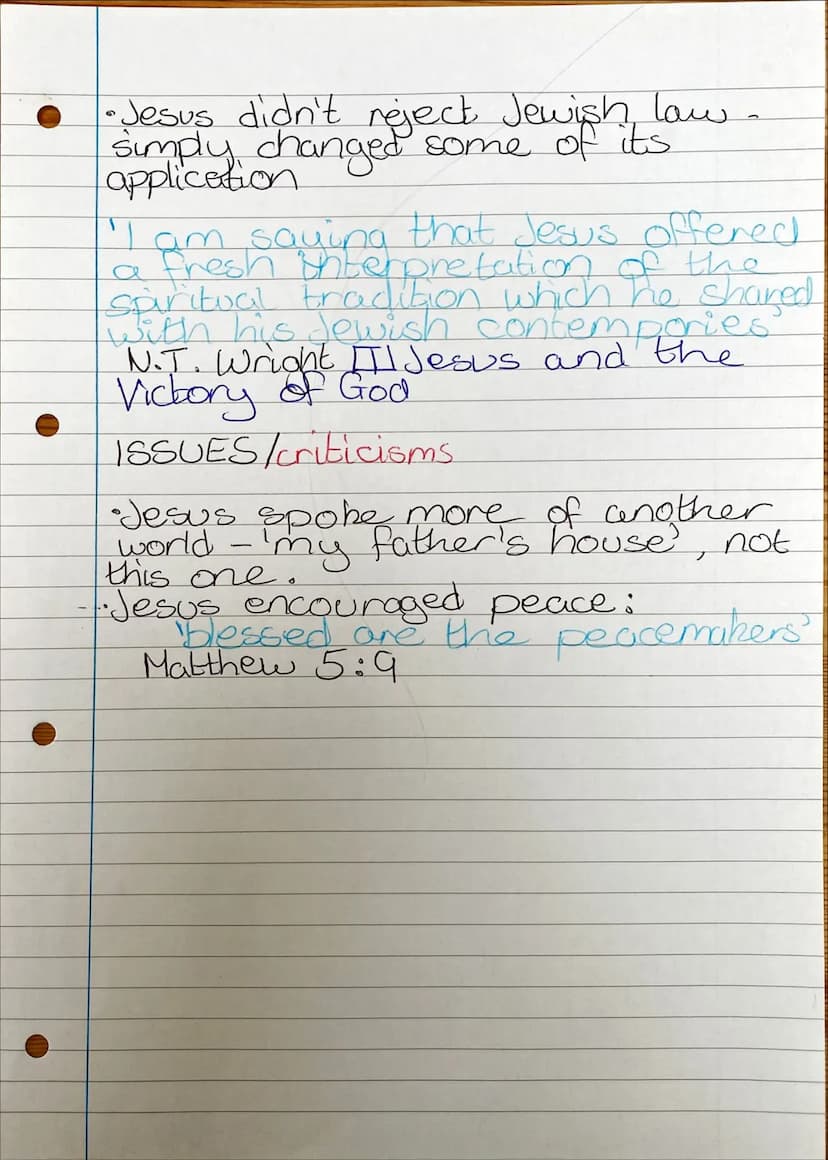 •Jesus didn't reject Jewish law -
simply changed some of its
application
'I am saying that Jesus offered
a fresh interpretation of the
spiritual tradition which he shared
with his Jewish contempories'
N.T. Wright Jesus and the
Victory of God
ISSUES/criticisms
•Jesus spoke more of another
world - 'my father's house', not
this one.
•Jesus encouraged peace:
'blessed are the peacemakers'
Matthew 5:9